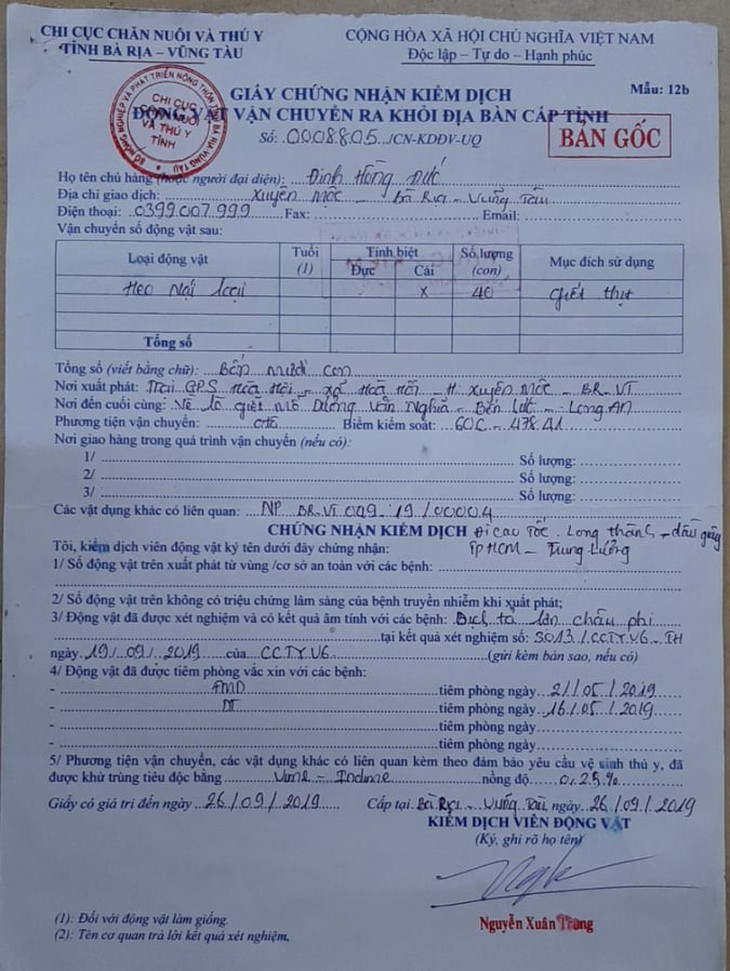 CHI CỤC CHĂN NUÔI VÀ THÚ Y
TỈNH BÀ RỊA – VŨNG TÀU
CỘNG HÒA XÃ HỘI CHỦ NGHĨA VIỆT NAM
Độc lập – Tự do – Hạnh phúc
Mẫu: 12b
GIẤY CHỨNG NHẬN KIỂM DỊCH
ĐỘNG VẬT VẬN CHUYỂN RA KHỎI ĐỊA BÀN CẤP TỈNH
Số: 0008805 /CN-KDĐV-UQ
BẢN GỐC
SỞ NÔNG NGHIỆP VÀ PHÁT TRIỂN NÔNG THÔN BÀ RỊA-VŨNG TÀU
CHI CỤC
CHĂN NUÔI
VÀ THÚ Y
TỈNH
Họ tên chủ hàng (hoặc người đại diện): Đinh Hồng Đức
Địa chỉ giao dịch: Xuyên Mộc – Bà Rịa – Vũng Tàu
Điện thoại: 0399007999 Fax: Email:
Vận chuyển số động vật sau:
Loại động vật Tuổi (1) Tính biệt Số lượng (con) Mục đích sử dụng
Đực Cái
Heo Nái loại X 40 giết thịt
Tổng số
Tổng số (viết bằng chữ): Bốn mươi con
Nơi xuất phát: Trại GPS Hòa Hội – xã Hòa Hội – H. Xuyên Mộc – BR-VT
Nơi đến cuối cùng: Về lò giết mổ Dương Văn Nghĩa – Bến Lức – Long An
Phương tiện vận chuyển: ôtô Biểm kiểm soát: 60C – 478.41
Nơi giao hàng trong quá trình vận chuyển (nếu có):
1/ Số lượng:
2/ Số lượng:
3/ Số lượng:
Các vật dụng khác có liên quan: NP BR-VT 049-19/00004
CHỨNG NHẬN KIỂM DỊCH Đi cao tốc Long Thành – dầu giây
Tôi, kiểm dịch viên động vật ký tên dưới đây chứng nhận: TP HCM – Trung Lương
1/ Số động vật trên xuất phát từ vùng /cơ sở an toàn với các bệnh:
2/ Số động vật trên không có triệu chứng lâm sàng của bệnh truyền nhiễm khi xuất phát;
3/ Động vật đã được xét nghiệm và có kết quả âm tính với các bệnh: Dịch tả lợn châu phi
tại kết quả xét nghiệm số: 3013/CCTYV6-TH
ngày 19/09/2019 của CCTYV6 (gửi kèm bản sao, nếu có)
4/ Động vật đã được tiêm phòng vắc xin với các bệnh:
- FMD tiêm phòng ngày 21/05/2019
- DT tiêm phòng ngày 16/05/2019
- tiêm phòng ngày
- tiêm phòng ngày
5/ Phương tiện vận chuyển, các vật dụng khác có liên quan kèm theo đảm bảo yêu cầu vệ sinh thú y, đã
được khử trùng tiêu độc bằng Vime – Iodine nồng độ 0,25%
Giấy có giá trị đến ngày 26/09/2019 Cấp tại Bà Rịa – Vũng Tàu, ngày 26/09/2019
KIỂM DỊCH VIÊN ĐỘNG VẬT
(Ký, ghi rõ họ tên)
Nguyễn Xuân Trung
(1): Đối với động vật làm giống.
(2): Tên cơ quan trả lời kết quả xét nghiệm.